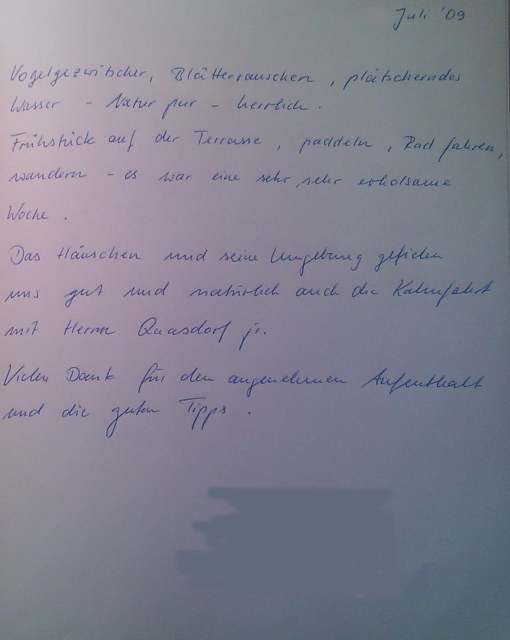 Juli '09
Vogelgezwitscher, Blätterrauschen, plätscherndes
Wasser - Natur pur - herrlich.
Frühstück auf der Terrasse, paddeln, Rad fahren,
wandern - es war eine sehr, sehr erholsame
Woche.
Das Häuschen und seine Umgebung gefielen
uns gut und natürlich auch die Kahnfahrt
mit Herrn Quasdorf jr.
Vielen Dank für den angenehmen Aufenthalt
und die guten Tipps.